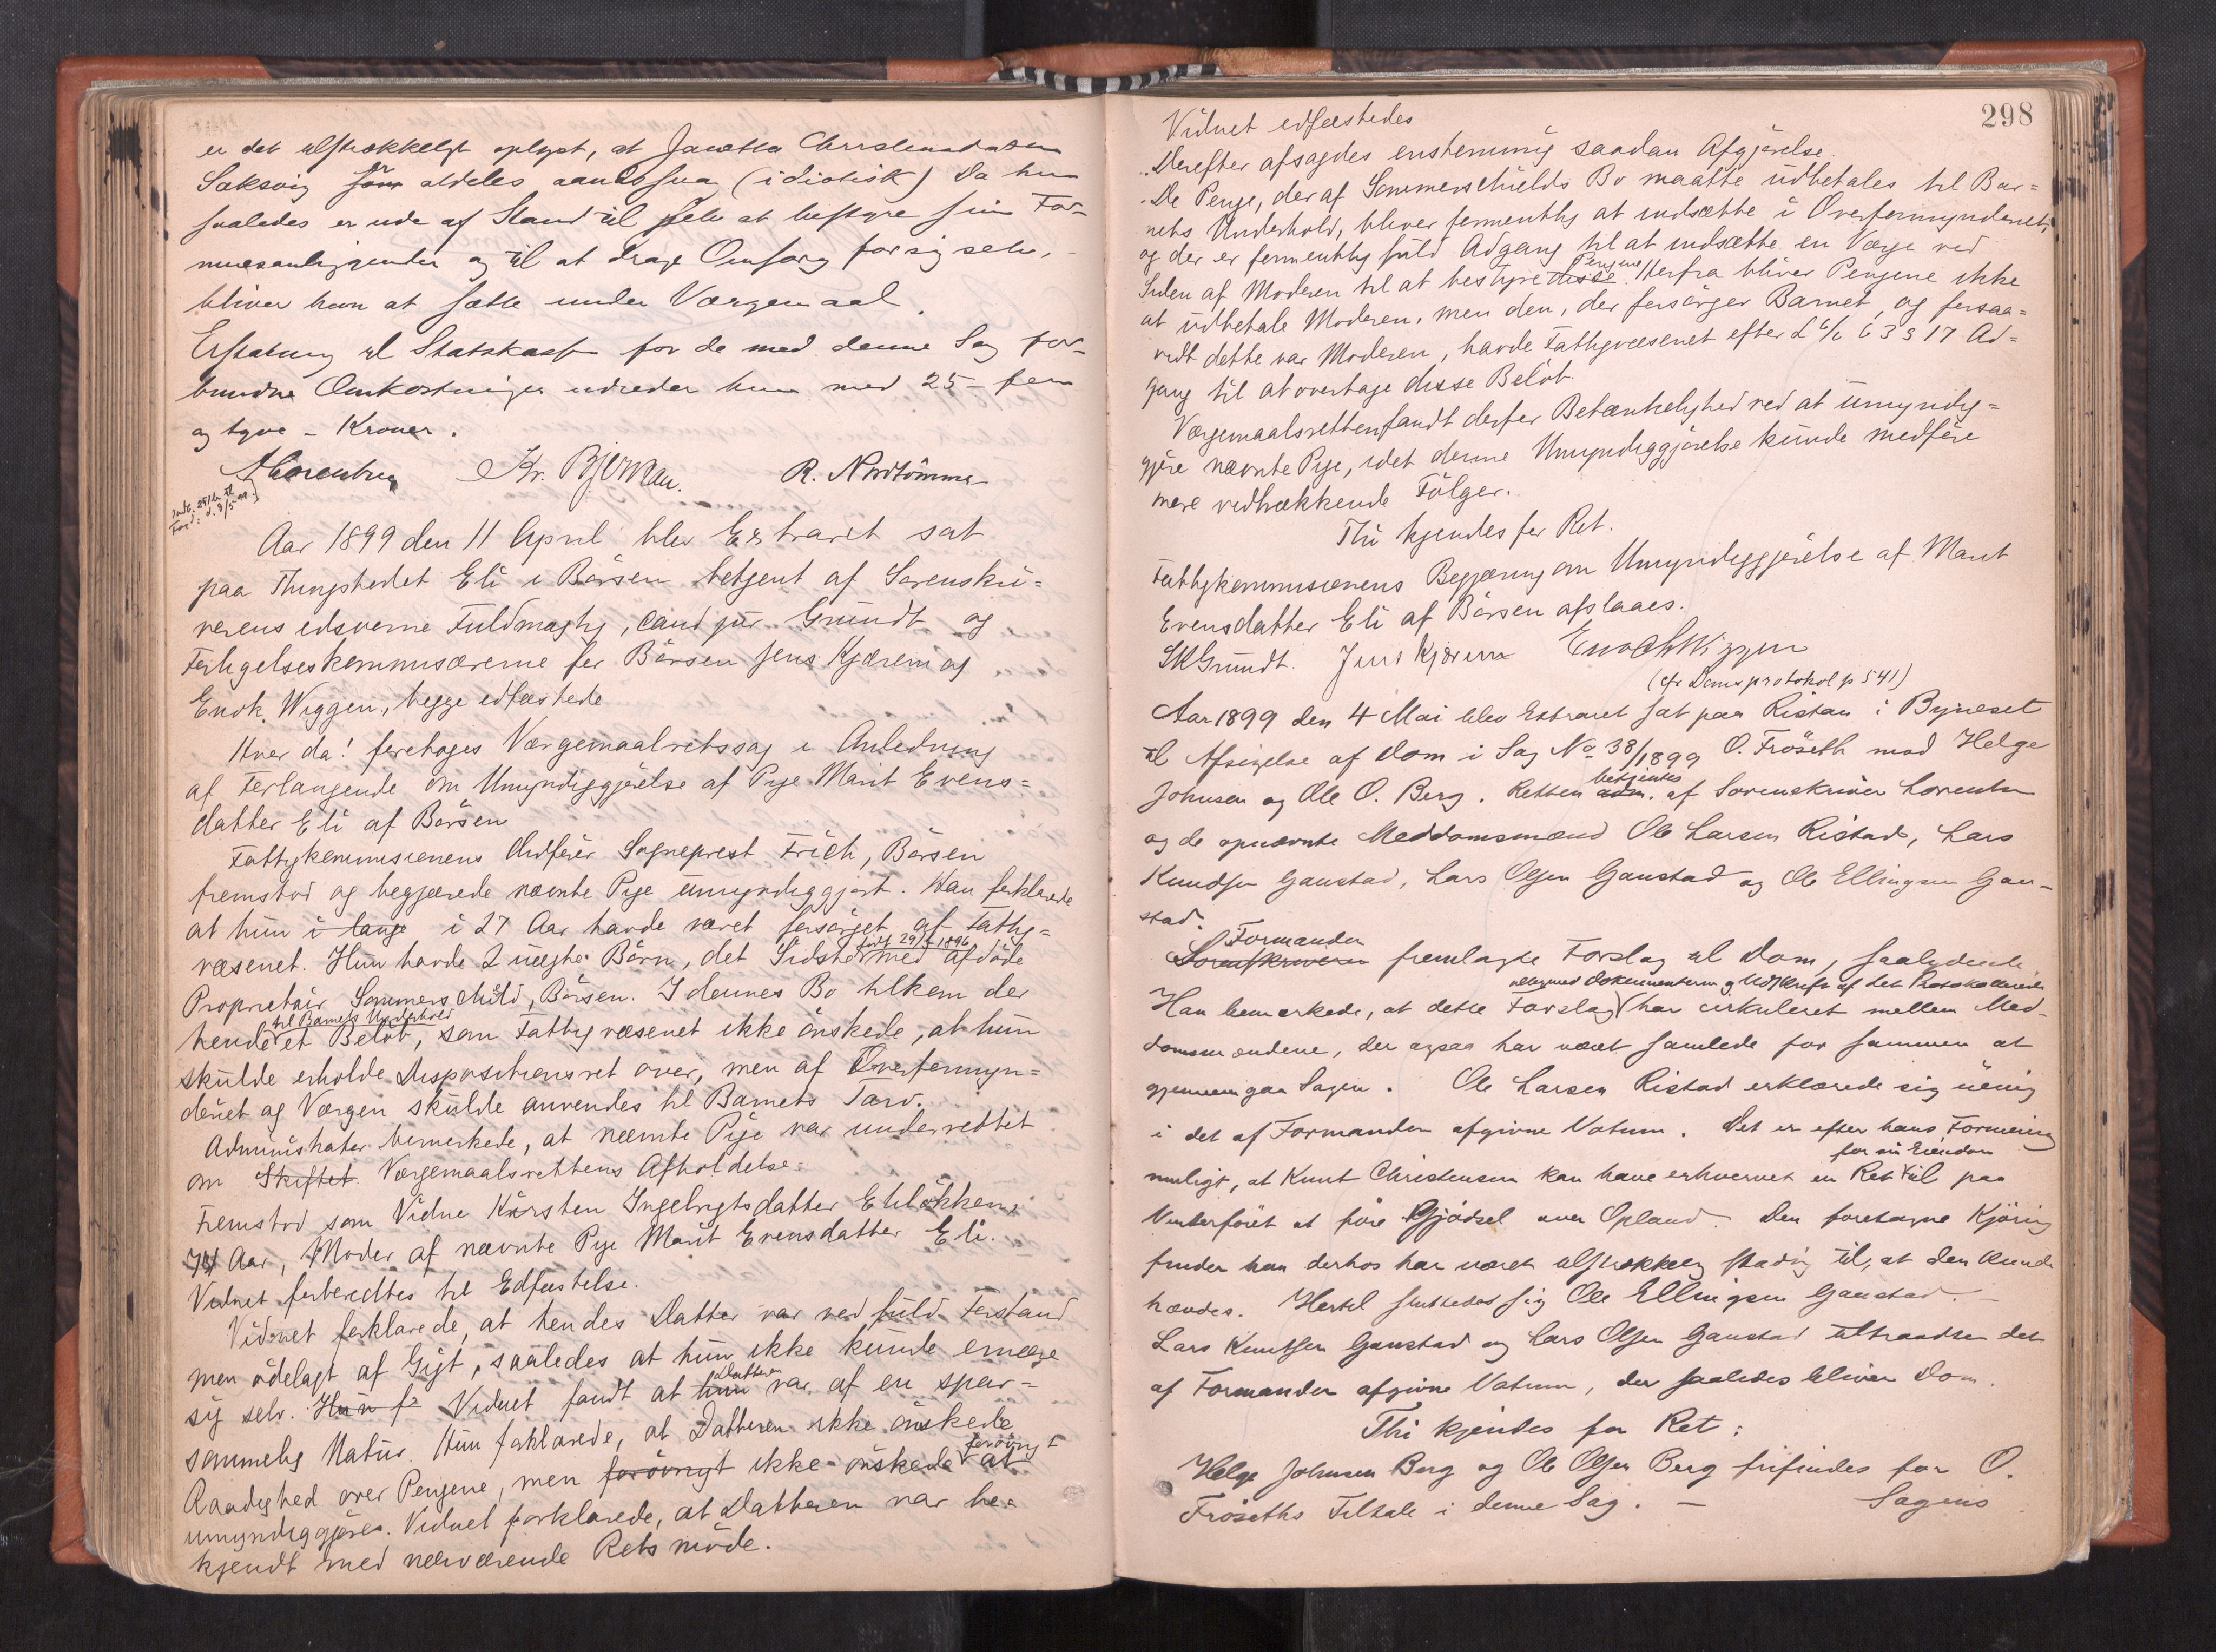 er det tilstrækkeligt oplyst, at Janetta Christensdatter
Saksvig som aldeles aandssvag (idiotisk) Da hun
saaledes er ude af Stand til selv at bestyre sine For-
muesanliggender og til at drage Omsorg for sig selv,
bliver hun at sætte under Værgemaal.
Erstatning til Statskassen for de med denne Sag for-
bundne Omkostninger udreder hun med 25 – fem
og tyve – Kroner.
Kr. Bjerkan. R. Nordtømme
Aar 1899 den 11 April blev Extraret sat
paa Thingstedet Eli i Børsen betjent af Sorenskri=
verens edsvorne Fuldmægtig, cand jur Grundt og
Forligelseskommisærerne for Børsen Jens Kjærem og
Enok Wiggen, begge edfæstede
Hvor da! foretoges Værgemaalretssag i Anledning
af Forlangende om Umyndiggjørelse af Pige Marit Evens=
datter Eli af Børsen
Fattigkommisionens Ordfører Sogneprest Frich, Børsen
fremstod og begjærede nævnte Pige umyndiggjort. Han forklarede
at hun i lange i 27 Aar havde været forsørget af Fattig=
væsenet. Hun havde 2 uægte Børn, det Sidste født 29/ 1896 med afdøde
Proprietær Sommerschild, Børsen. I dennes Bo tilkom der
hende til Barnets Underhold et Beløb, som Fattigvæsenet ikke ønskede, at hun
skulde erholde Dispositionsret over, men af Overformyn=
deriet og Værgen skulde anvendes til Barnets Tarv.
Administrator bemerkede, at nævnte Pige var underrettet
om Skiftet Værgemaalsrettens Afholdelse.
Fremstod som Vidne Kirsten Ingebrigtsdatter Eliløkken,
Aar, Moder af nævnte Pige Marit Evensdatter Eli.
Vidnet forberedtes til Edfæstelse.
Vidnet forklarede, at hendes Datter var ved fuld Forstand
men ødelagt af Gigt, saaledes at hun ikke kunde ernære
sig selv. Hun f Vidnet fandt at hun Datteren var af en spar=
sommelig Natur. Hun forklarede, at Datteren ikke ønskede
Raadighed over Pengene, men forøvrigt ikke ønskede forøvrigt at
umyndiggjøres. Vidnet forklarede, at Datteren var be=
kjendt med nærværende Retsmøde.
298
Vidnet edfæstedes
Derefter afsagdes enstemmig saadan Afgjørelse.
De Penge, der af Sommerschields Bo maatte udbetales til Bar=
nets Underhold, bliver formentlig at indsætte i Overformynderiet,
og der er formentlig fuld Adgang til at indsætte en Værge ved
Siden af Moderen til at bestyre disse Pengene. Herfra bliver Pengene ikke
at udbetale Moderen, men den, der forsørger Barnet, og forsaa=
vidt dette var Moderen, havde Fattigvæsenet efter L 6/6 63 § 17 Ad=
gang til at overtage disse Beløb.
Værgemaalsretten fandt derfor Betænkelighed ved at umyndig=
gjøre nævnte Pige, idet denne Umyndiggjørelse kunde medføre
mere vidtrækkende Følger.
Thi kjendes for Ret.
Fattigkommisionens Begjæring om Umyndiggjørelse af Marit
Evensdatter Eli af Børsen afslaaes.
SKGrundt. Jens Kjærem Enok Wiggen
(cfr Domsprotokol p 541)
Aar 1899 den 4 Mai blev Extraret sat paa Ristan i Byneset
til Afsigelse af Dom i Sag No 38/1899 O. Frøseth mod Helge
Johnsen og Ole O. Berg. Retten adm. betjentes af Sorenskriver Lorentzen
og de opnævnte Meddomsmænd Ole Larsen Ristad, Lars
Knudsen Gaustad, Lars Olsen Gaustad og Ole Ellingsen Gau-
stad.
Sorenskriveren Formanden fremlagte Forslag til Dom, saalydende
Han bemærkede, at dette Forslag tilligemed Dokumenterne og Udskrift af det Protokollerede har cirkuleret mellem Med-
domsmændene, der ogsaa har været samlede for sammen at
gjennemgaa Sagen. Ole Larsen Ristad erklærede sig uenig
i det af Formanden afgivne Votum. Det er efter hans Formening
muligt, at Knut Christensen kan have erhvervet en Ret for sin Eiendom til paa
Vinterføret at føre Gjødsel over Opland. Den foretagne Kjøring
finder han derhos har været tilstrækkelig stadig til, at den kunde
hævdes. Hertil sluttedes sig Ole Ellingsen Gaustad. –
Lars Knutsen Gaustad og Lars Olsen Gaustad tiltraadte det
af Formanden afgivne Votum, der saaledes bliver Dom.
Thi kjendes for Ret:
Helge Johnsen Berg og Ole Olsen Berg frifindes for O.
Frøseths Tiltale i denne Sag. – Sagens